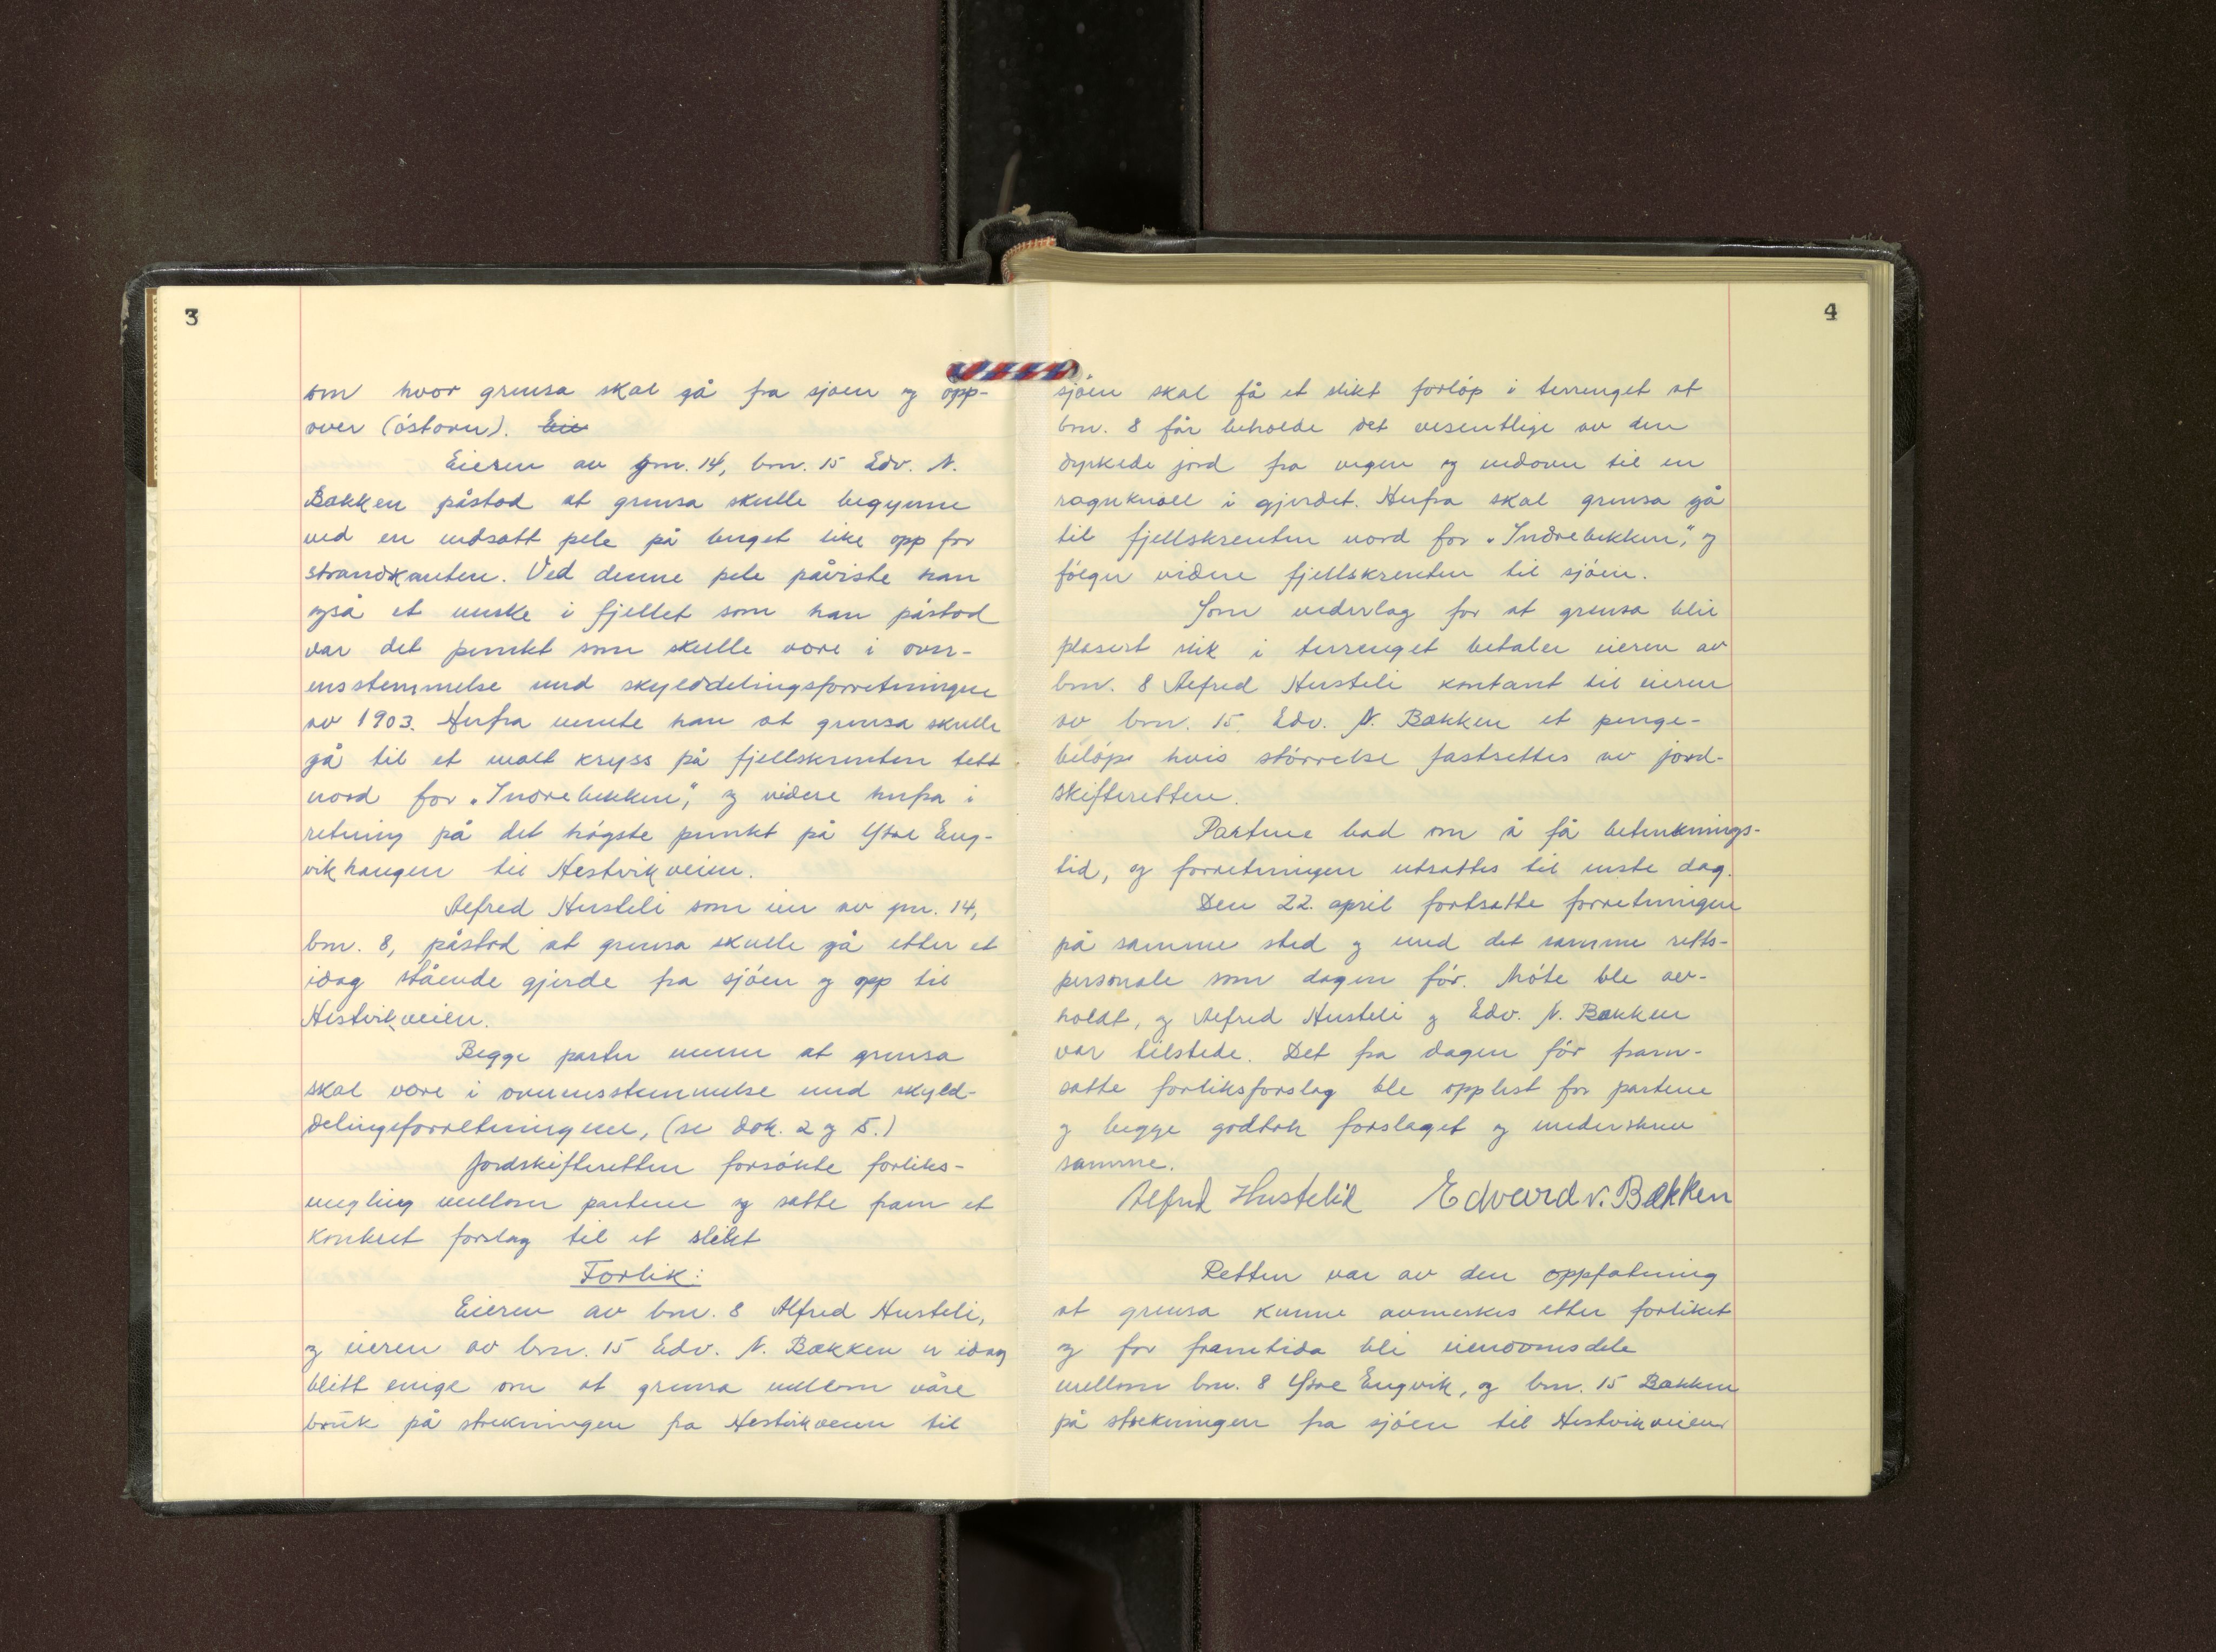 3
om hvor grensa skal gå fra sjøen og opp-
over (østover). Eie
Eieren av gnr. 14, bnr. 15 Edv. N.
Bakken påstod at grensa skulle begynne
ved en nedsatt pele på berget like opp for
strandkanten. Ved denne pele påviste han
også et merke i fjellet som han påstod
var det punkt som skulle være i over-
ensstemmelse med skylddelingsforretningen
av 1903. Herfra mente han at grensa skulle
gå til et malt kryss på fjellskrenten tett
nord for „Indrebekken", og videre herfra i
retning på det høgste punkt på Ytre Eng-
vikhaugen til Hestvikveien.
Alfred Husteli som eier av gnr. 14,
bnr. 8, påstod at grensa skulle gå etter et
idag stående gjerde fra sjøen og opp til
Hestvikveien.
Begge parter mener at grensa
skal være i overensstemmelse med skyld-
delingsforretningene, (se dok. 2 og 5.)
Jordskifteretten forsøkte forliks-
megling mellom partene og satte fram et
konkret forslag til et slikt
Forlik:
Eieren av bnr. 8 Alfred Husteli,
og eieren av bnr. 15 Edv. N. Bakken er idag
blitt enige om at grensa mellom våre
bruk på strekningen fra Hestvikveien til
4
sjøen skal få et slikt forløp i terrenget at
bnr. 8 får beholde det vesentlige av den
dyrkede jord fra vegen og nedover til en
rognknoll i gjerdet. Herfra skal grensa gå
til fjellskrenten nord for „Indrebekken", og
følger videre fjellskrenten til sjøen.
Som vederlag for at grensa blir
plasert slik i terrenget betaler eieren av
bnr. 8 Alfred Husteli kontant til eieren
av bnr. 15. Edv. N. Bakken et penge-
beløp hvis størrelse fastsettes av jord-
skifteretten.
Partene bad om å få betenknings-
tid, og forretningen utsattes til neste dag.
Den 22. april fortsatte forretningen
på samme sted og med det samme retts-
personale som dagen før. Møte ble av-
holdt, og Alfred Husteli og Edv. N. Bakken
var tilstede. Det fra dagen før fram-
satte forliksforslag ble opplest for partene
og begge godtok forslaget og underskrev
samme.
Alfred Husteli Edvard N. Bakken
Retten var av den oppfatning
at grensa kunne avmerkes etter forliket
og for framtida bli eiendomsdele
mellom bnr. 8 Ytre Engvik, og bnr. 15 Bakken
på strekningen fra sjøen til Hestvikveien